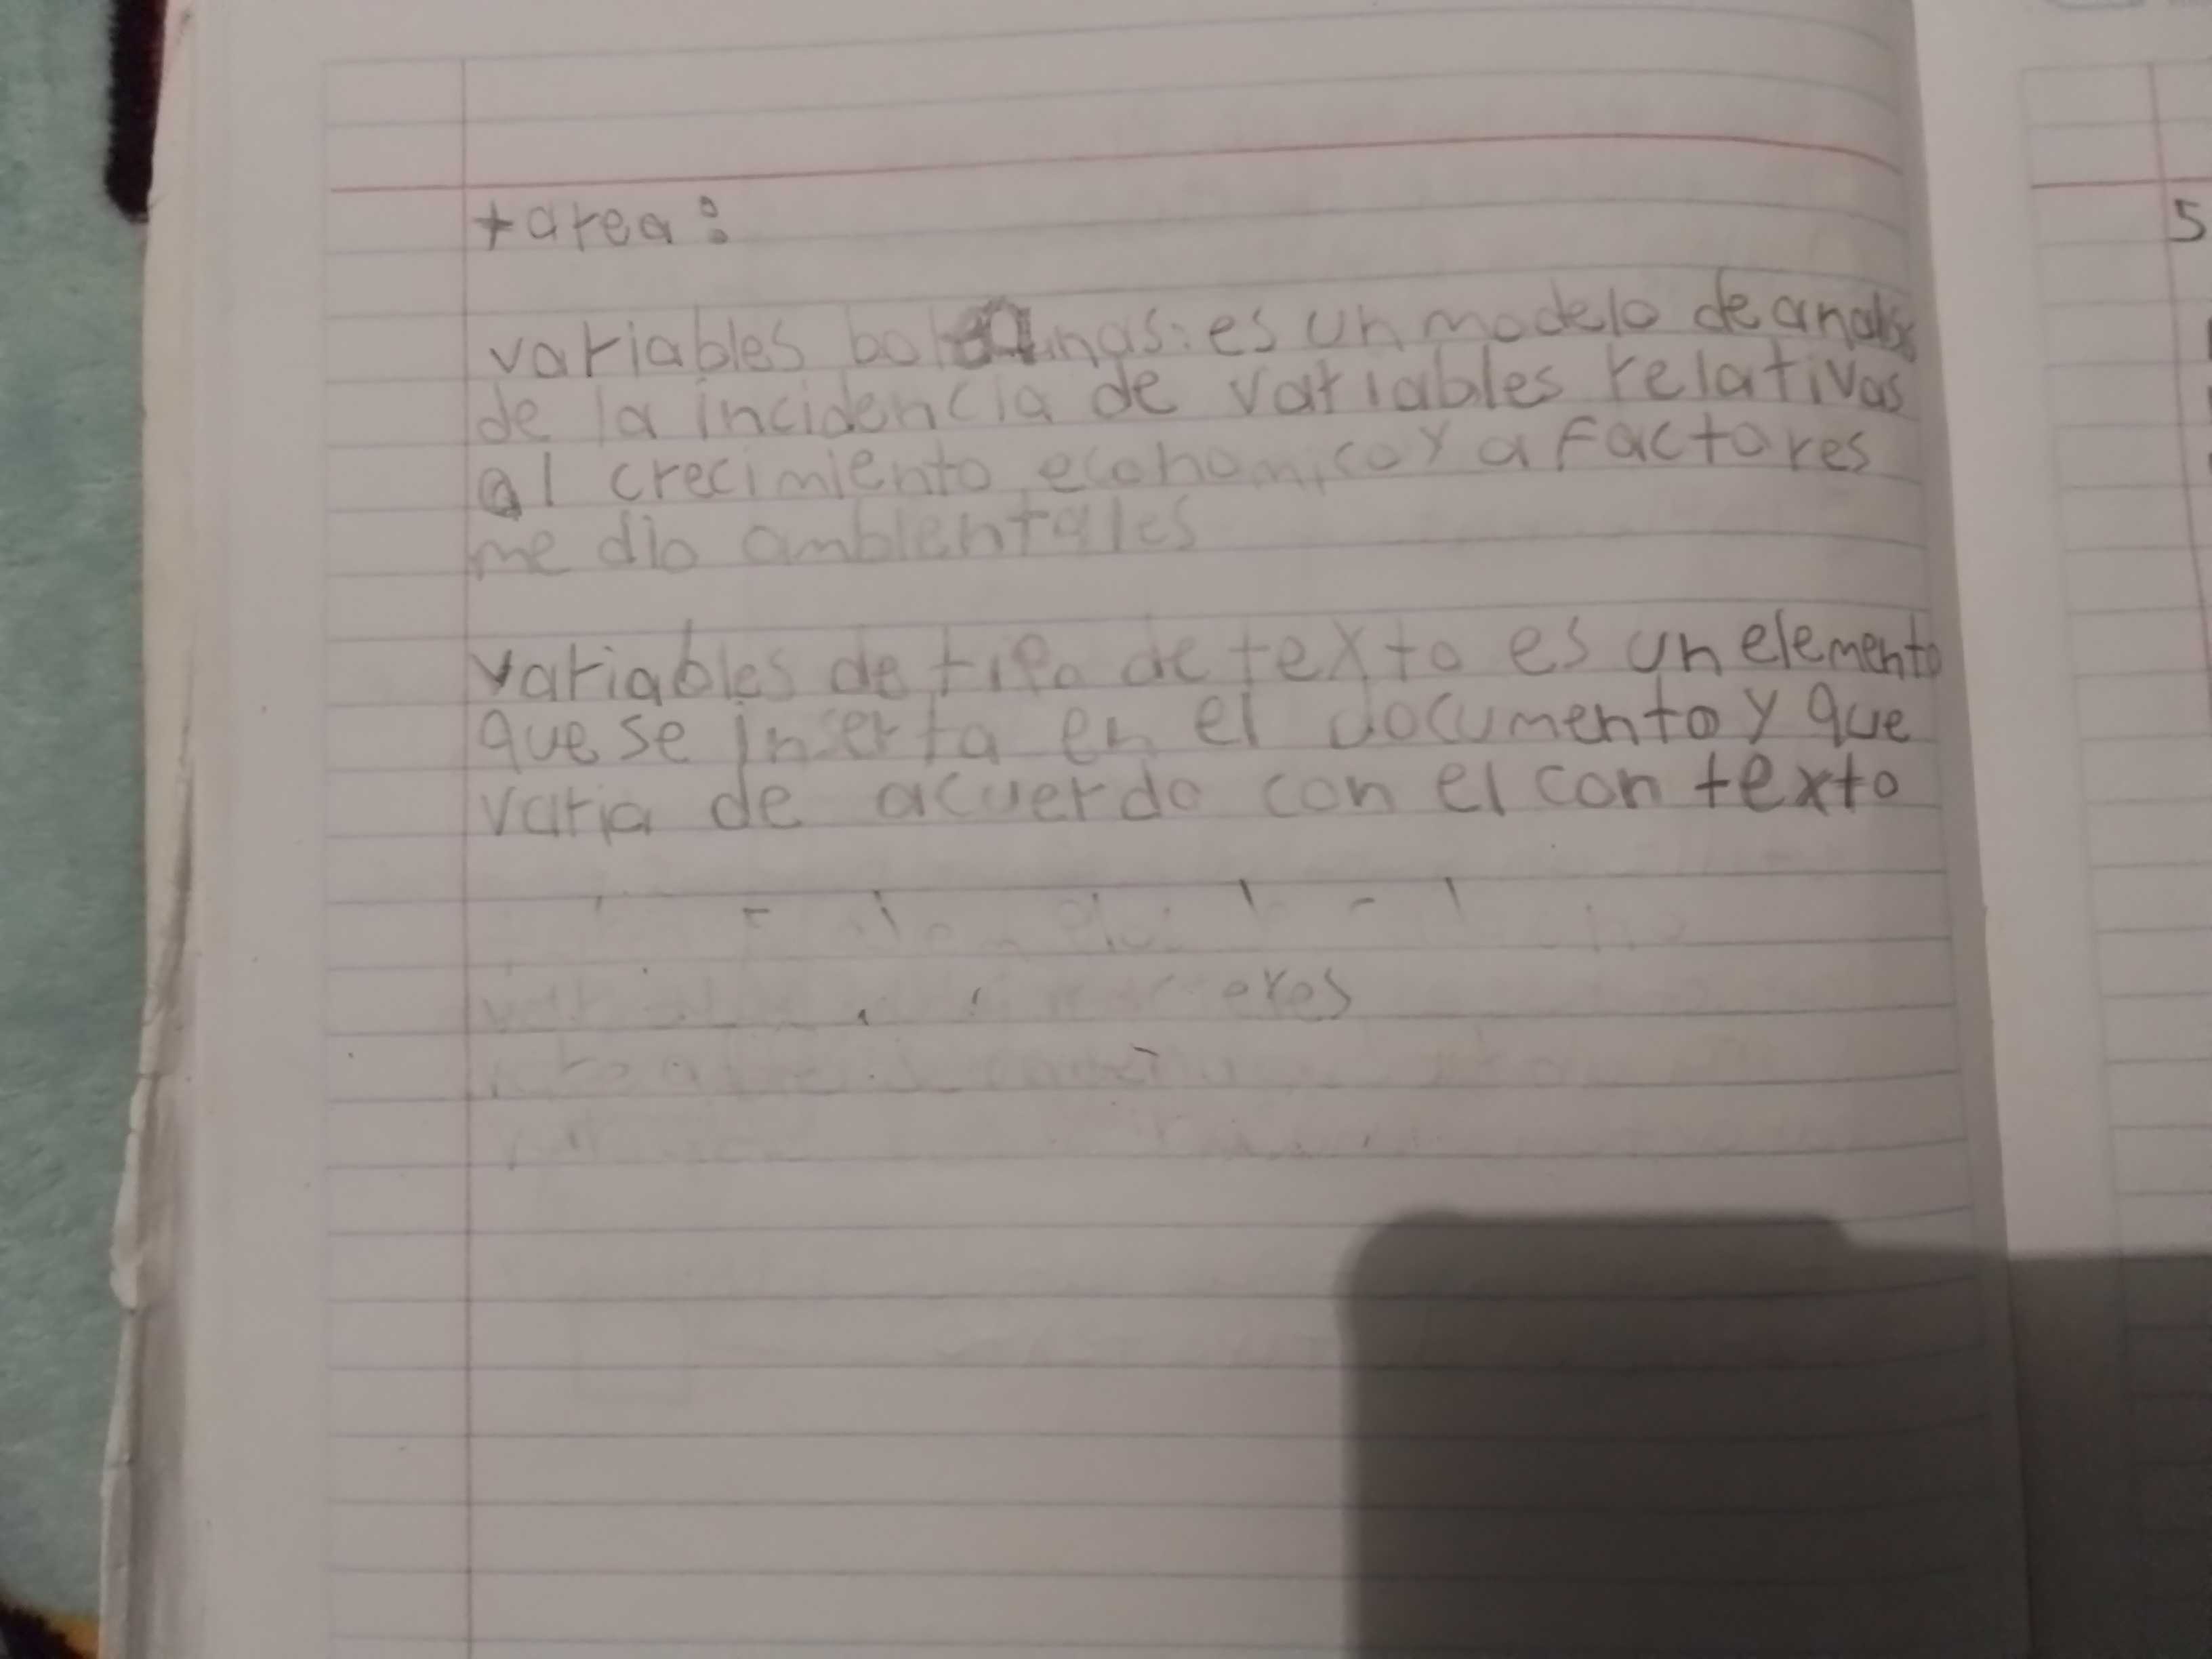 tarea:
variables es un modelo de analisis
de la incidencia de variables relativas
al crecimiento economico y a Factores
me dio ambientales
variables de tipo de texto es un elemento
que se inserta en el documento y que
varia de acuerdo con el con texto
5